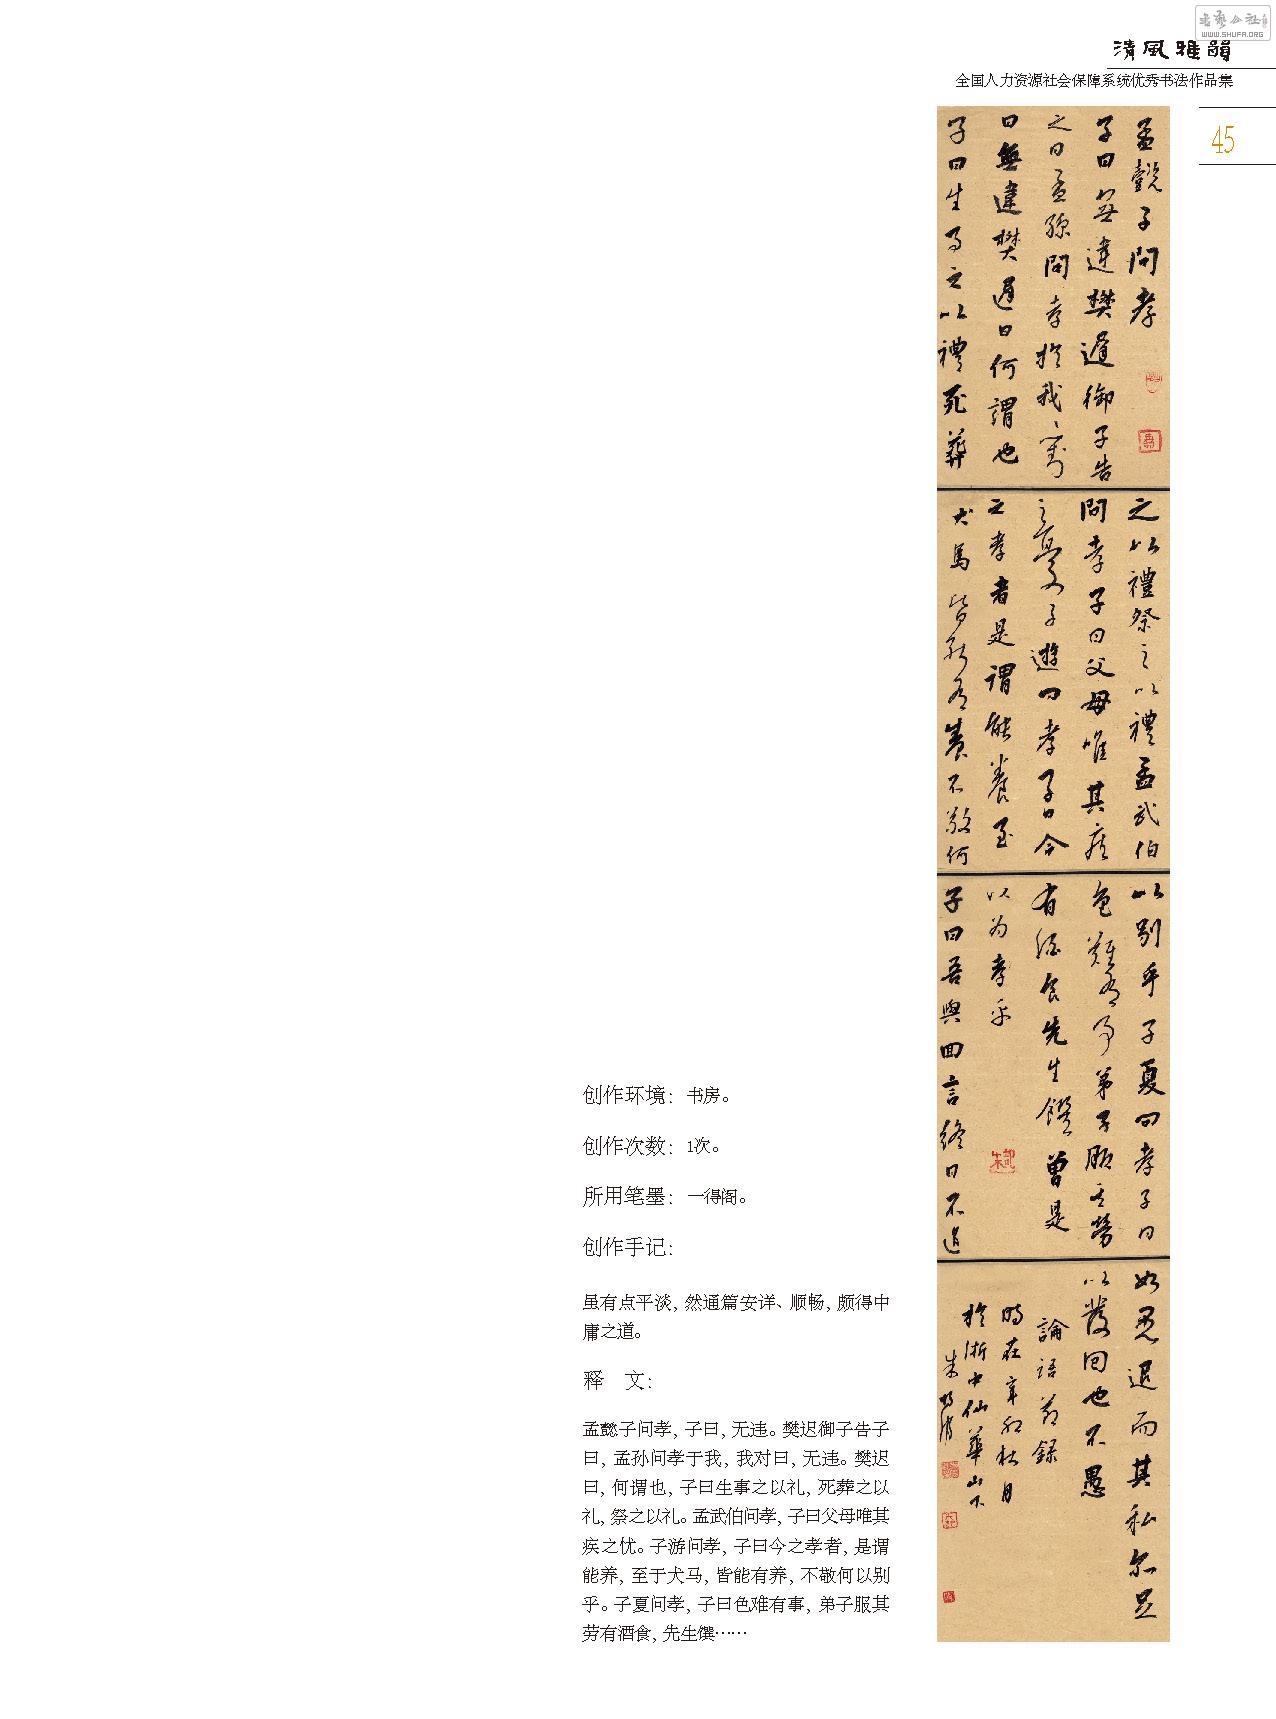 書藝公社
WWW.SHUFA.ORG
清風雅韻
全国人力资源社会保障系统优秀书法作品集
45
孟懿子問孝
子曰無違樊遲御子告
之曰孟孫問孝於我我對
曰無違樊遲曰何謂也
子曰生事之以禮死葬
之以禮祭之以禮孟武伯
問孝子曰父母唯其疾
之憂子遊問孝子曰今
之孝者是謂能養至
犬馬皆能有養不敬何
以別乎子夏問孝子曰
色難有事弟子服其勞
有酒食先生饌曾是
以为孝乎
子曰吾與回言終日不違
如愚退而其私亦足
以發回也不愚
論語節録
時在辛卯秋月
於浙中仙華山下
朱
创作环境：书房。
创作次数：1次。
所用笔墨：一得阁。
创作手记：
虽有点平淡，然通篇安详、顺畅，颇得中
庸之道。
释　文：
孟懿子问孝，子曰，无违。樊迟御子告子
曰，孟孙问孝于我，我对曰，无违。樊迟
曰，何谓也，子曰生事之以礼，死葬之以
礼，祭之以礼。孟武伯问孝，子曰父母唯其
疾之忧。子游问孝，子曰今之孝者，是谓
能养，至于犬马，皆能有养，不敬何以别
乎。子夏问孝，子曰色难有事，弟子服其
劳有酒食，先生馔……